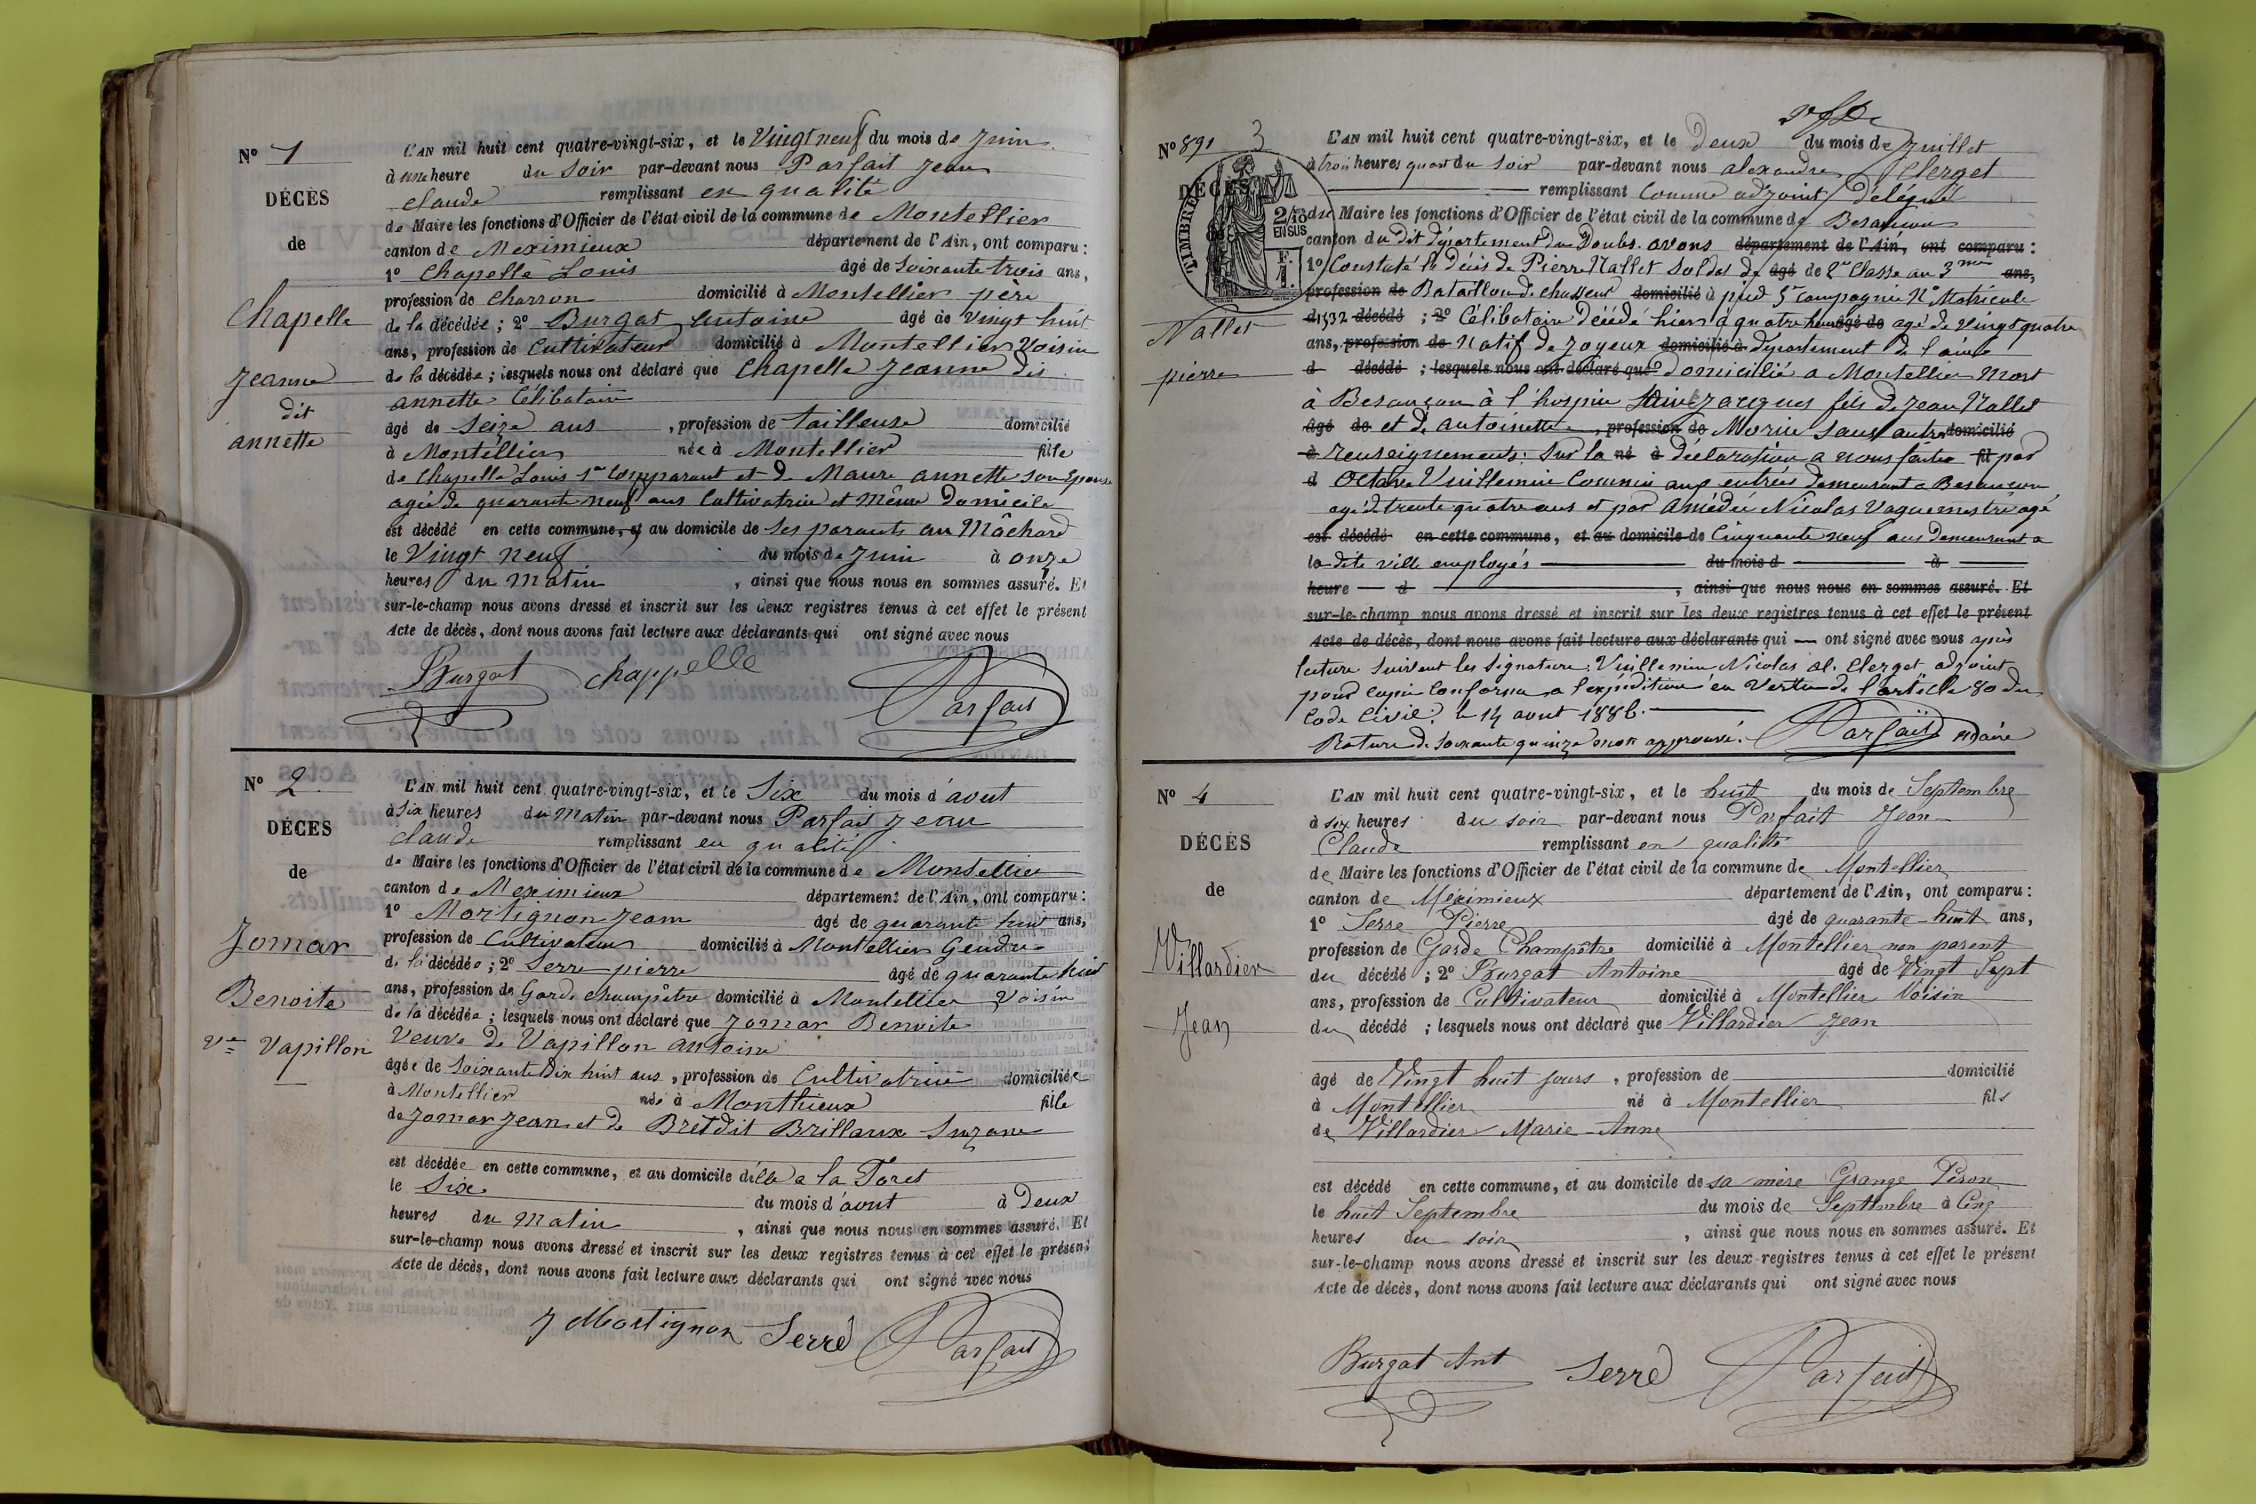 N° 1
DÉCÈS
de
Chapelle
Jeanne
dit
annette
L'AN mil huit cent quatre-vingt-six, et le Vingt neuf du mois de Juin
à une heure du Soir par-devant nous Parfait Jean
Claude remplissant en qualité
de Maire les fonctions d'Officier de l'état civil de la commune de Montellier
canton de Meximieux département de l'Ain, ont comparu :
1° Chapelle Louis âgé de Soixante trois ans,
profession de Charron domicilié à Montellier père
de la décédée ; 2° Burgat Antoine âgé de Vingt huit
ans, profession de Cultivateur domicilié à Montellier Voisin
de la décédée ; lesquels nous ont déclaré que Chapelle Jeanne dit
annette Célibataire
âgé de Seize ans , profession de tailleuse domicilié
à Montellier née à Montellier fille
de Chapelle Louis 1er Comparant et de Maure annette son Epouse
agée de quarante neuf ans Cultivatrice et même Domicile
est décédé en cette commune, et au domicile de Ses parants au Mâchard
le Vingt neuf du mois de Juin à onze
heures du matin , ainsi que nous nous en sommes assuré. Et
sur-le-champ nous avons dressé et inscrit sur les deux registres tenus à cet effet le présent
Acte de décès, dont nous avons fait lecture aux déclarants qui ont signé avec nous
Burgat Chappelle Parfait
N° 2
DÉCÈS
de
Jomar
Benoite
Vve Vapillon
L'AN mil huit cent quatre-vingt-six, et le Six du mois d'avut
à Six heures du matin par-devant nous Parfait Jean
Claude remplissant en qualité
de Maire les fonctions d'Officier de l'état civil de la commune de Montellier
canton de Meximieux département de l'Ain, ont comparu :
1° Mortignon Jean âgé de quarante huit ans,
profession de Cultivateur domicilié à Montellier Gendre
de la décédée ; 2° Serre pierre âgé de quarante huit
ans, profession de Garde champêtre domicilié à Montellier Voisin
de la décédée ; lesquels nous ont déclaré que Jomar Benoite
Veuve de Vapillon antoine
âgée de Soixante Dix huit ans , profession de Cultivatrice domiciliée
à Montellier née à Monthieux fille
de Jomar Jean et de Bret dit Brillaux Suzane
est décédée en cette commune, et au domicile d'elle a la Foret
le Six du mois d'avut à Deux
heures du matin , ainsi que nous nous en sommes assuré. Et
sur-le-champ nous avons dressé et inscrit sur les deux registres tenus à cet effet le présent
Acte de décès, dont nous avons fait lecture aux déclarants qui ont signé avec nous
J Mortignon Serre Parfait
N° 891 3
DÉCÈS
TIMBRE
2/10 EN SUS
F. 1.
Nallet
pierre
L'AN mil huit cent quatre-vingt-six, et le Deux du mois de Juillet
à trois heures quart du Soir par-devant nous alexandre Clerget
remplissant Comme adjoint Délégué
du Maire les fonctions d'Officier de l'état civil de la commune de Besançon
canton du dit Département du Doubs. avons département de l'Ain, ont comparu :
1° Constaté le Décès de Pierre Nallet Soldat de âgé de 2e Classe au 3me ans,
profession de Bataillon de chasseur domicilié à pied 5e Compagnie N° Matricule
d 1532 décédé ; 2° Célibataire Décédé hier à quatre heures âgé de agé de Vingt quatre
ans, profession de Natif de Joyeux domicilié à département de l'ain
d décédé ; lesquels nous ont déclaré que Domicilié a Montellier Mort
à Besançon à l'hospice Saint Jacques fils de Jean Nallet
âgé de et de antoinette , profession de Morin Sans autre domicilié
à renseignements: Sur la né à Déclaration a nous faite fil par
d Octave Vuillemin Commis aux entrées Demeurant a Besançon
agé de trente quatre ans et par Amédée Nicolas Vaguemestre agé
est décédé en cette commune, et au domicile de Cinquante neuf ans Demeurant a
la dite ville employés du mois d à
heure d , ainsi que nous nous en sommes assuré. Et
sur-le-champ nous avons dressé et inscrit sur les deux registres tenus à cet effet le présent
Acte de décès, dont nous avons fait lecture aux déclarants qui ont signé avec nous après
lecture Suivent les Signature: Vuillemin Nicolas al. Clerget adjoint
pour Copie Conforme a l'expédition en Vertu de l'article 80 du
Code Civil: le 14 avut 1886.
Rature de Soixante quinze mots approuvé. Parfait Maire
N° 4
DÉCÈS
de
Villardier
Jean
L'AN mil huit cent quatre-vingt-six, et le huit du mois de Septembre
à six heures du soir par-devant nous Parfait Jean
Claude remplissant en qualité
de Maire les fonctions d'Officier de l'état civil de la commune de Montellier
canton de Méximieux département de l'Ain, ont comparu :
1° Serre Pierre âgé de quarante-huit ans,
profession de Garde Champêtre domicilié à Montellier non parent
du décédé ; 2° Burgat Antoine âgé de Vingt Sept
ans, profession de Cultivateur domicilié à Montellier Voisin
du décédé ; lesquels nous ont déclaré que Villardier Jean
âgé de Vingt huit jours , profession de domicilié
à Montellier né à Montellier fils
de Villardier Marie-Anne
est décédé en cette commune, et au domicile de sa mère Grange Péron
le huit Septembre du mois de Septembre à Cinq
heures du soir , ainsi que nous nous en sommes assuré. Et
sur-le-champ nous avons dressé et inscrit sur les deux registres tenus à cet effet le présent
Acte de décès, dont nous avons fait lecture aux déclarants qui ont signé avec nous
Burgat Ant Serre Parfait